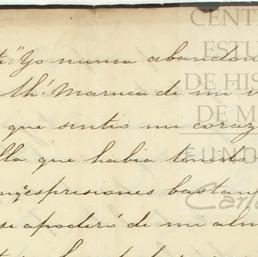 "Yo nunca abandon
Ah! Maruca de mi v
que sintio mi coraz
lla que habia tenido
espresiones bastan
se apoderó de mi alm
CENT
ESTU
DE HIS
DE M
FUND
Car